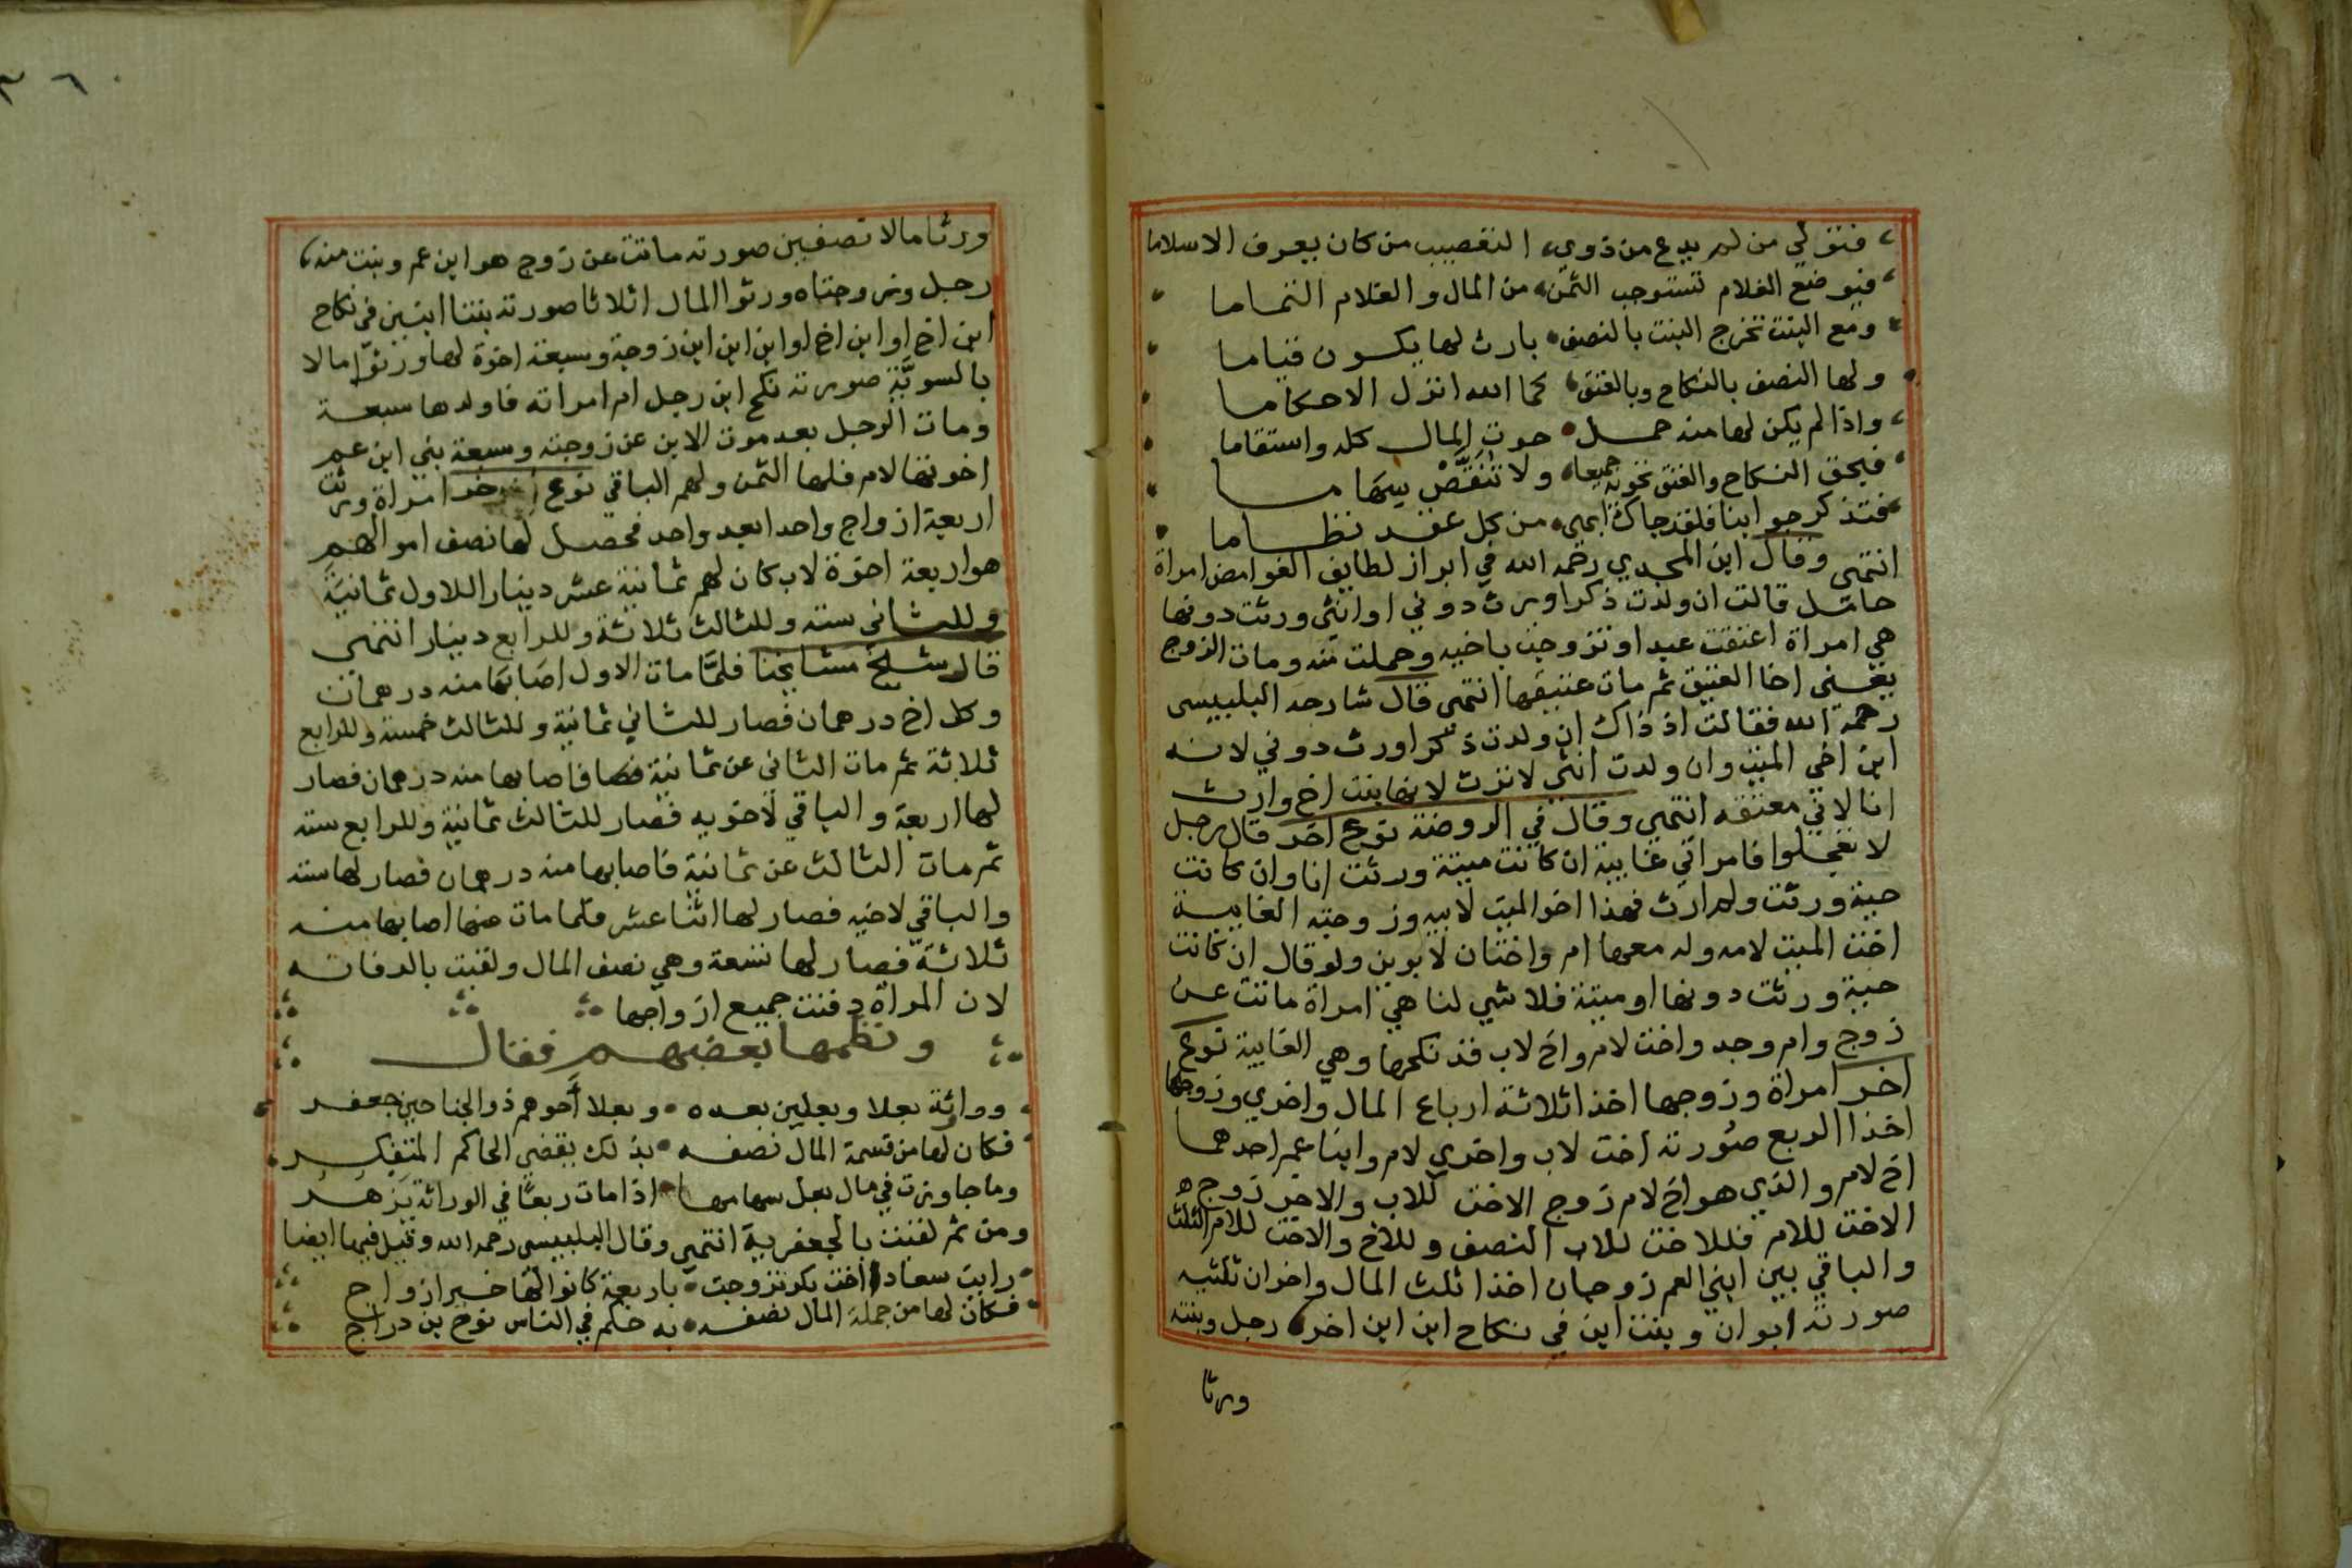 فتولي من لم يدع من ذوي، التعصيب من كان يعرف الاسلاما
فبوضع الغلام تستوجب الثمن، من المال والغلام التماما
ومع البنت تخرج البنت بالنصف، بارث لها يكون قياما
ولها النصف بالنكاح وبالعتق، كما الله انزل الاحكاما
واذا لم يكن لها منه حمل، حوت المال كله واستقاما
فبحق النكاح والعتق تحويه جميعا، ولا تنقص سهاما
فتذكر جوابنا فلقد جاك ابهى، من كل عقد نظاما
انتهى وقال ابن المجدي رحمه الله في ابراز لطايف الغوامض امراة
حامل قالت ان ولدت ذكرا ورث دوني او انثى ورثت دونها
هي امراة اعتقت عبدا وتزوجت باخيه وحملت منه ومات الزوج
يعني اخا العتيق ثم مات عتيقها انتهى قال شارحه البلبيسى
رحمة الله فقالت اذ ذاك ان ولدت ذكرا ورث دوني لانه
ابن اخي الميت وان ولدت انثى لا ترث لانها بنت اخ وارث
انا لاني معتقه انتهى وقال في الروضة نوع اخر قال رجل
لا تعجلوا فامراتي غايبة ان كانت ميتة ورثت انا وان كانت
حية ورثت ولم ارث فهذا اخو الميت لابيه وزوجته الغايبة
اخت الميت لامه وله معها ام واختان لابوين ولو قال ان كانت
حية ورثت دونها او ميتة فلا شي لنا هي امراة ماتت عن
زوج وام وجد واخت لام واخ لاب قد نكحها وهي الغايبة نوع
اخر امراة وزوجها اخذا ثلاثة ارباع المال واخري وزوجها
اخذا الربع صورته اخت لاب واخرى لام وابنا عم احدهما
اخ لام والذي هو اخ لام زوج الاخت للاب والاخر زوج
الاخت للام فللاخت للاب النصف وللاخ والاخت للام الثلث
والباقي بين ابني العم زوجان اخذا ثلث المال واخران ثلثيه
صورته ابوان وبنت ابن في نكاح ابن ابن اخر، رجل وبنته
ورثا
ورثا مالا نصفين صورته ماتت عن زوج هو ابن عم وبنت منه،
رجل وزوجتاه ورثوا المال اثلاثا صورته بنتا ابنين في نكاح
ابن اخ او ابن اخ او ابن ابن ابن زوجة وسبعة اخوة لها ورثوا مالا
بالسوية صورته نكح ابن رجل ام امراته فاولدها سبعة
ومات الرجل بعد موت الابن عن زوجته وسبعة بني ابن عم
اخوتها لام فلها الثمن ولهم الباقي نوع اخر امراة ورثت
اربعة ازواج واحدا بعد واحد فحصل لها نصف اموالهم
هو اربعة اخوة لاب كان لهم ثمانية عشر دينارا للاول ثمانية
وللثاني ستة وللثالث ثلاثة وللرابع دينار انتهى
قال شيخ مشايخنا فلما مات الاول اصابها منه درهمان
وكل اخ درهمان فصار للثاني ثمانية وللثالث خمسة وللرابع
ثلاثة ثم مات الثاني عن ثمانية فاصابها منه درهمان فصار
لها اربعة والباقي لاخويه فصار للثالث ثمانية وللرابع ستة
ثم مات الثالث عن ثمانية فاصابها منه درهمان فصار لها ستة
والباقي لاخيه فصار لها اثنا عشر فلما مات عنها اصابها منه
ثلاثة فصار لها تسعة وهي نصف المال ولقبت بالدفانه
لان المراة دفنت جميع ازواجها
ونظمها بعضهم فقال
ووارثة بعلا وبعلين بعده، وبعلا اخوهم ذو الجناحين جعفر
فكان لها من قسمة المال نصفه، بذلك يقضي الحاكم المتفكر
وما جاوزت في مال بعل سهامها، اذا مات ربعا في الوراثة يزهر
ومن ثم لقبت بالجعفرية انتهى وقال البلبيسى رحمه الله وقيل فيها ايضا
رايت سعاد اخت بكر تزوجت، باربعة كانوا لها خير ازواج
فكان لها من جملة المال نصفه، به حكم في الناس نوح بن دراج